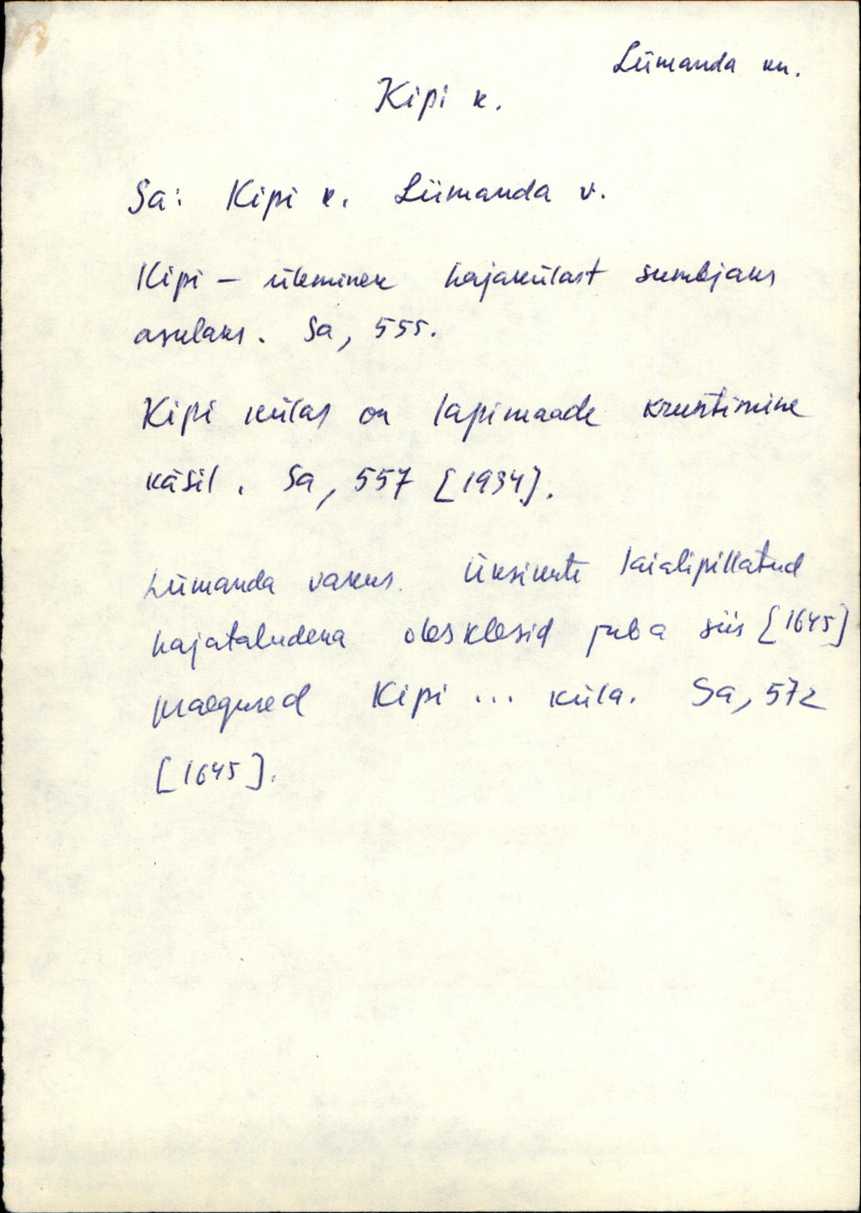 Lümanda kn.
Kipi k.
Sa: Kipi k. Lümanda v.
Kipi – üleminek hajakülast sumbjaks
asulaks. Sa, 555.
Kipi külas on lapimaade kruntimine
käsil. Sa, 557 [1934].
Lümanda vakus. Üksikute laialipillatud
hajataludena olesklesid juba siis [1645]
praegused Kipi ... küla. Sa, 572
[1645].